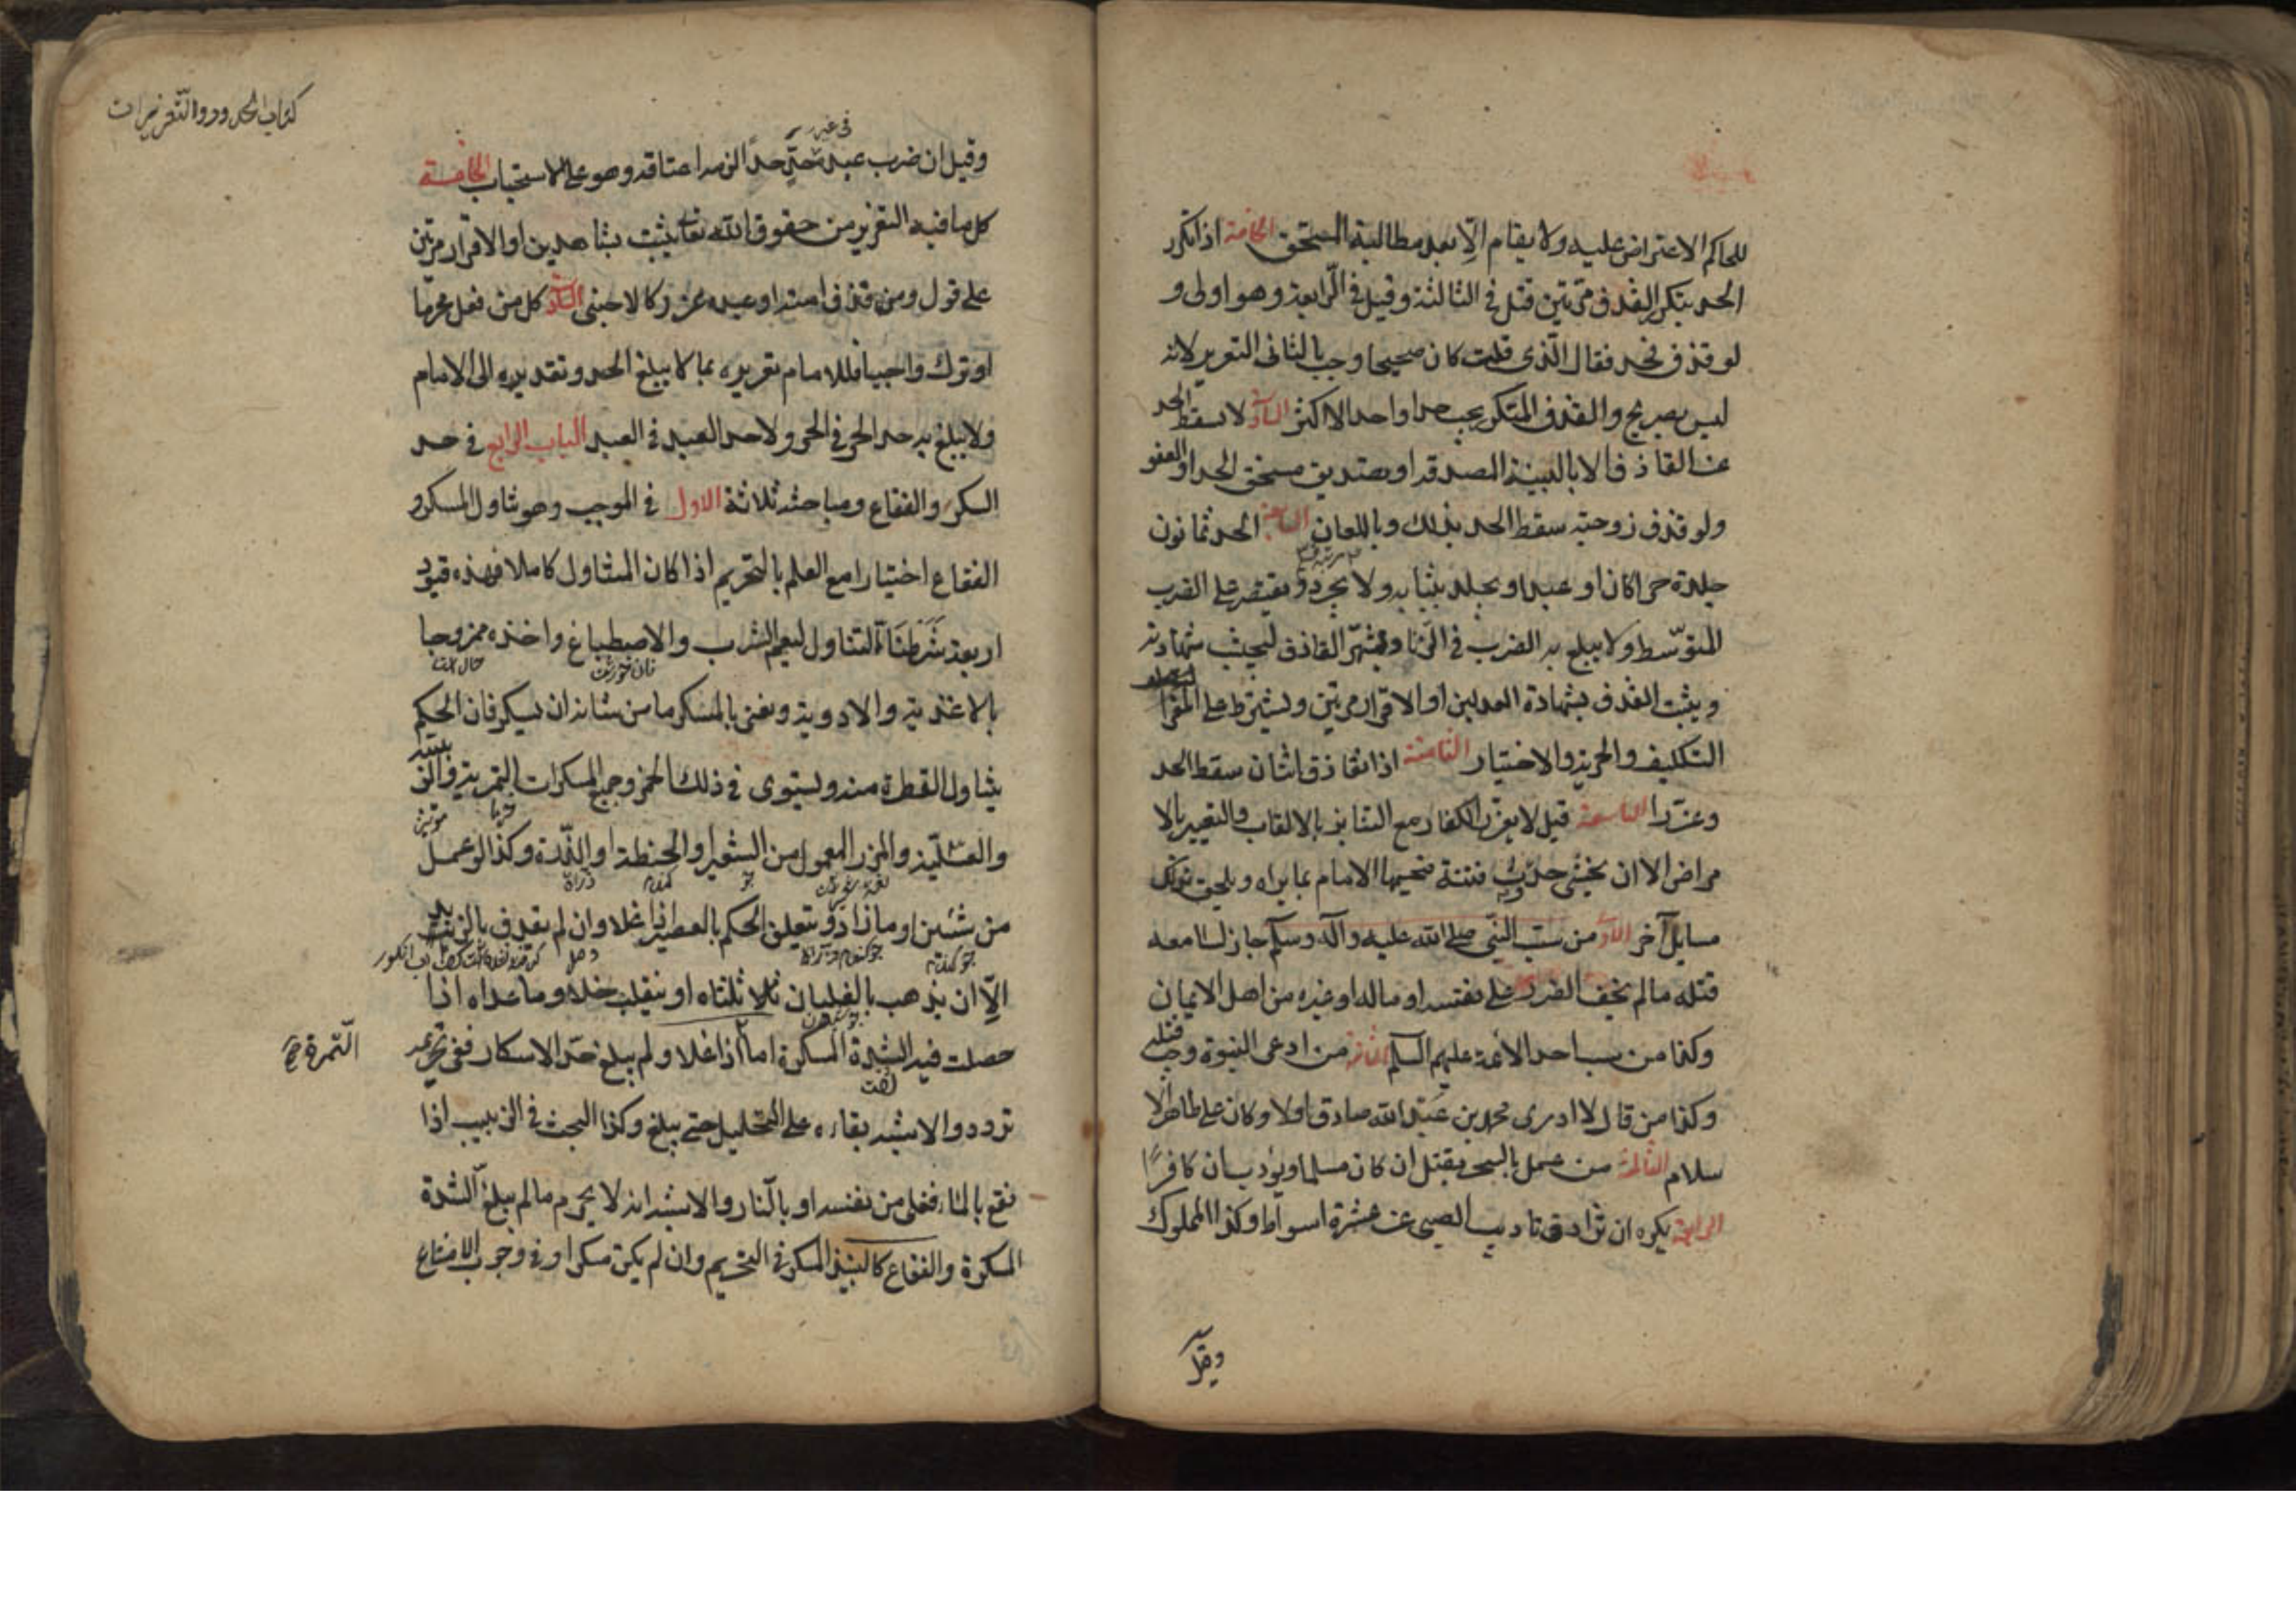 للحاكم الاعتراض عليه ولا يقام الّا بعد مطالبة المستحق الخامسة اذا تكرر
الحد بتكرر القذف مرّتين قتل في الثالثة وقيل في الرّابعة وهو اولى و
لو قذف فحد فقال الّذى قلت كان صحيحا وجب بالثانى التعزير لانه
ليس بصريح والقذف المتكرر يوجب حدا واحدا لا اكثر السادسة لا يسقط الحد
عن القاذف الا بالبينة المصدقه او بتصديق مستحق الحد او العفو
ولو قذف زوجته سقط الحد بذلك وباللعان السابعة الحد ثمانون
جلدة حرا كان او عبدا ويجلد بثيابه ولا يجرد ويقتصر على الضرب
المتوسّط ولا يبلغ به الضرب في الزّنا ويشهّر القاذف ليجتنب شهادته
ويثبت القذف بشهادة العدلين او الاقرار مرّتين ويشترط على المقر
التكليف والحرية والاختيار الثامنة اذا تقاذف اثنان سقط الحد
وعزّرا التاسعة قيل لا يعزّر الكفار مع التنابز بالالقاب والتعيير بالا
مراض الا ان يخشى حدوث فتنة فيحسمها الامام بما يراه ويلحق بذلك
مسايل آخر الاولى من سبّ النّبى صلى الله عليه وآله وسلم جاز لسامعه
قتله ما لم يخف الضرر على نفسه او ماله او غيره من اهل الايمان
وكذا من سب احد الائمة عليهم السلم الثانية من ادعى النبوة وجب قتله
وكذا من قال لا ادرى محمد بن عبد الله صادق اولا وكان على ظاهر الا
سلام الثالثة من عمل بالسحر يقتل ان كان مسلما ويؤدب ان كان كافرًا
الرابعة يكره ان يزاد في تاديب الصبى عن عشرة اسواط وكذا المملوك
وقيل
كتاب الحدود والتّعزيرات
في غير
وقيل ان ضرب عبده حدًّا الزمه اعتاقه وهو على الاستحباب الخامسة
كل ما فيه التعزير من حقوق الله تعالى يثبت بشاهدين او الاقرار مرتين
على قول ومن قذف امته او عبده عزر كالاجنبى السادسة كل من فعل محرّما
او ترك واجبا فللامام تعزيره بما لا يبلغ الحد وتقديره الى الامام
ولا يبلغ به حد الحر في الحر ولا حد العبد في العبد الباب الرابع في حد
السكر والفقاع ومباحثه ثلاثة الاول في الموجب وهو تناول المسكر و
الفقاع اختيارا مع العلم بالتحريم اذا كان المتناول كاملا فهذه قيود
اربعة شرطنا التناول ليعم الشرب والاصطباغ واخذه ممزوجا
نان خورش
بالاغذية والادوية ونعنى بالمسكر ما من شانه ان يسكر فان الحكم
بتناول القطرة منه ويستوى في ذلك الخمر وجميع المسكرات التمرية والزبيبية
خرما
مويز
والعسلية والمزر المعمول من الشعير او الحنطة او الذّرة وكذا لو عمل
جو
كندم
من شيئين او ما زاد ويتعلق الحكم بالعصير اذا غلا وان لم يقذف بالزبد
الّا ان يذهب بالغليان ثلثاه او ينقلب خلا وما عداه اذا
حصلت فيه الشدة المسكرة اما اذا غلا ولم يبلغ حدّ الاسكار ففى تحريمه
التّمر
تردد والاشبه بقاءه على التحليل حتى يبلغ وكذا البحث في الزبيب اذا
نقع بالماء فغلى من نفسه او بالنّار والاشبه انه لا يحرم ما لم يبلغ الشدة
المسكرة والفقاع كالنبيذ المسكر في التحريم وان لم يكن مسكرا وفى وجوب الامتناع